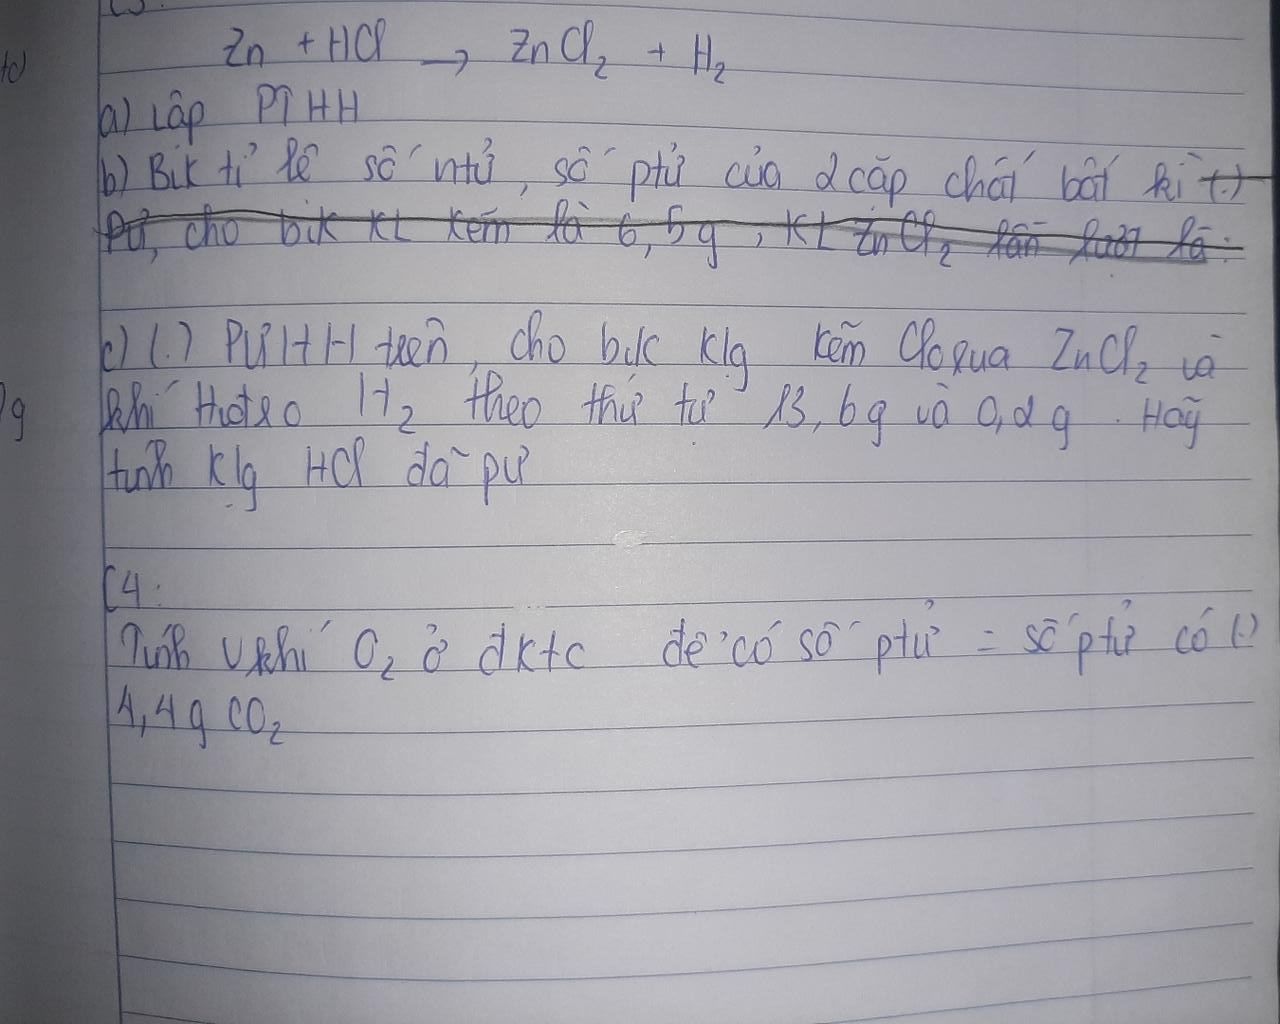 C3:
Zn + HCl → ZnCl₂ + H₂
a) Lập PTHH
b) Bik tỉ lệ số ntử, số ptử của 2 cặp chất bất kì (.)
Pứ, cho bik KL kẽm là 6,5g, KL ZnCl₂ lần lượt là:
c) (.) PƯHH trên, cho bik klg kẽm Clorua ZnCl₂ và
khí Hiđro H₂ theo thứ tự 13,6g và 0,2g. Hãy
tính klg HCl đã pư
C4:
Tính V khí O₂ ở đktc để có số ptử = số ptử có (.)
4,4g CO₂